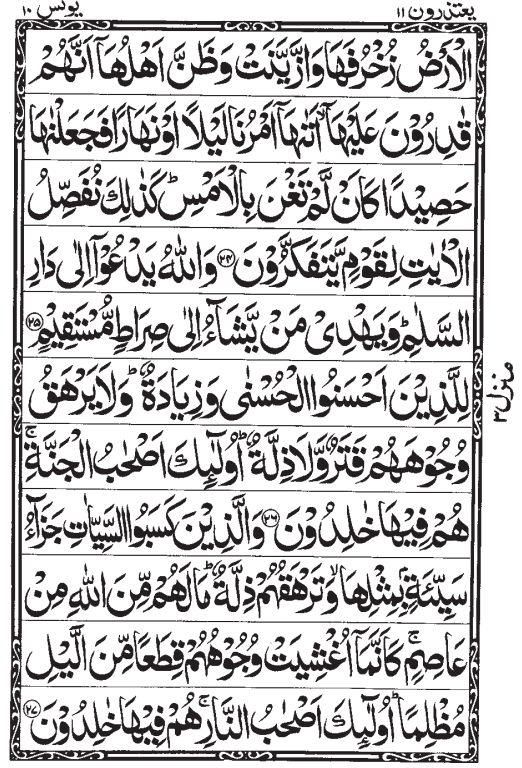 یعتذرون ۱۱
یونس ۱۰
الْاَرْضُ زُخْرُفَهَا وَازَّیَّنَتْ وَظَنَّ اَهْلُهَاۤ اَنَّهُمْ
قٰدِرُوْنَ عَلَیْهَاۤ ۙ اَتٰىهَاۤ اَمْرُنَا لَیْلًا اَوْ نَهَارًا فَجَعَلْنٰهَا
حَصِیْدًا كَاَنْ لَّمْ تَغْنَ بِالْاَمْسِ ؕ كَذٰلِكَ نُفَصِّلُ
الْاٰیٰتِ لِقَوْمٍ یَّتَفَكَّرُوْنَ ﴿۲۴﴾ وَاللّٰهُ یَدْعُوْۤا اِلٰی دَارِ
السَّلٰمِ ؕ وَیَهْدِیْ مَنْ یَّشَآءُ اِلٰی صِرَاطٍ مُّسْتَقِیْمٍ ﴿۲۵﴾
لِلَّذِیْنَ اَحْسَنُوا الْحُسْنٰی وَزِیَادَةٌ ؕ وَلَا یَرْهَقُ
وُجُوْهَهُمْ قَتَرٌ وَّلَا ذِلَّةٌ ؕ اُولٰٓئِكَ اَصْحٰبُ الْجَنَّةِ ۚ
هُمْ فِیْهَا خٰلِدُوْنَ ﴿۲۶﴾ وَالَّذِیْنَ كَسَبُوا السَّیِّاٰتِ جَزَآءُ
سَیِّئَةٍۭ بِمِثْلِهَا ۙ وَتَرْهَقُهُمْ ذِلَّةٌ ؕ مَا لَهُمْ مِّنَ اللّٰهِ مِنْ
عَاصِمٍ ۚ كَاَنَّمَاۤ اُغْشِیَتْ وُجُوْهُهُمْ قِطَعًا مِّنَ الَّیْلِ
مُظْلِمًا ؕ اُولٰٓئِكَ اَصْحٰبُ النَّارِ ۚ هُمْ فِیْهَا خٰلِدُوْنَ ﴿۲۷﴾
منزل ۳